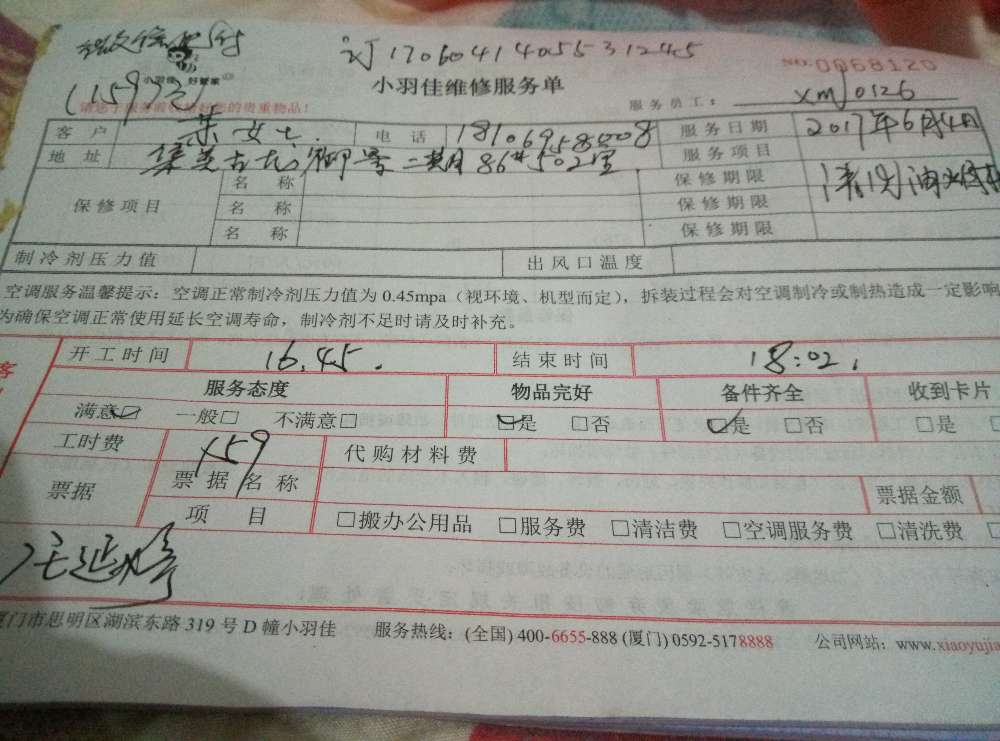 微信支付
订170604140553 1245
NO:0068120
小羽佳 好管家
小羽佳维修服务单
(159元)
服务员工: xmj0126
客户 女士 电话 18106958008 服务日期 2017年6月4日
地址 集美古龙御景二期86#502室 服务项目 清洗油烟
保修项目 名称 保修期限
名称 保修期限
名称 保修期限
制冷剂压力值 出风口温度
空调服务温馨提示：空调正常制冷剂压力值为0.45mpa（视环境、机型而定），拆装过程会对空调制冷或制热造成一定影响
为确保空调正常使用延长空调寿命，制冷剂不足时请及时补充。
开工时间 16.45. 结束时间 18:02.
服务态度 物品完好 备件齐全 收到卡片
满意☑ 一般□ 不满意□ ☑是 □否 ☑是 □否 □是
工时费 159 代购材料费
票据 票据名称 票据金额
项目 □搬办公用品 □服务费 □清洁费 □空调服务费 □清洗费
厦门市思明区湖滨东路319号D幢小羽佳 服务热线：(全国) 400-6655-888 (厦门) 0592-5178888 公司网站：www.xiaoyujia